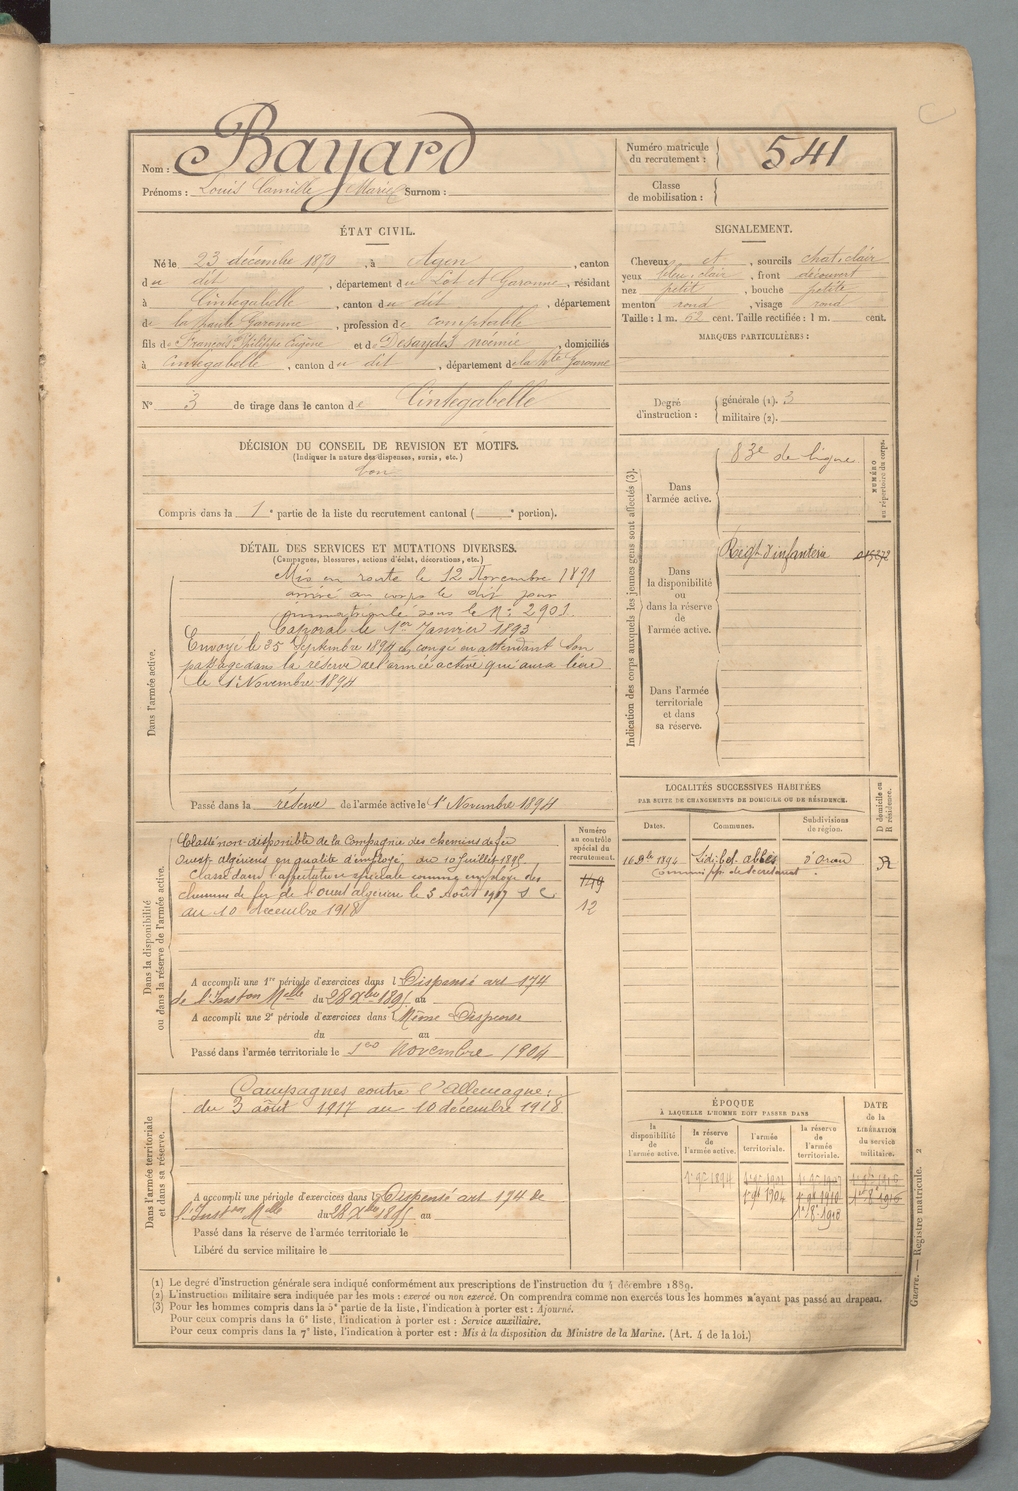 Nom : Bayard
Prénoms : Louis Camille Marie Surnom :
Numéro matricule du recrutement : 541
Classe de mobilisation :
ÉTAT CIVIL.
Né le 23 décembre 1870, à Agen, canton
du dit, département du Lot et Garonne, résidant
à Cintegabelle, canton du dit, département
de la haute Garonne, profession de comptable
fils de François Philippe Eugène et de Desaydes noémie, domiciliés
à Cintegabelle, canton du dit, département de la hte Garonne
N° 3 de tirage dans le canton de Cintegabelle
SIGNALEMENT.
Cheveux et, sourcils chat. clair
yeux bleu. clair, front découvert
nez petit, bouche petite
menton rond, visage rond
Taille : 1 m. 62 cent. Taille rectifiée : 1 m. cent.
MARQUES PARTICULIÈRES :
Degré d'instruction : générale (1). 3
militaire (2).
DÉCISION DU CONSEIL DE REVISION ET MOTIFS.
(Indiquer la nature des dispenses, sursis, etc.)
bon
Compris dans la 1e partie de la liste du recrutement cantonal ( e portion).
DÉTAIL DES SERVICES ET MUTATIONS DIVERSES.
(Campagnes, blessures, actions d'éclat, décorations, etc.)
Dans l'armée active.
Mis en route le 12 Novembre 1891
arrivé au corps le dit jour
immatriculé sous le N° 2901.
Caporal le 1er Janvier 1893
Envoyé le 25 Septembre 1894 en congé en attendant son
passage dans la réserve de l'armée active qui aura lieu
le 1er Novembre 1894
Passé dans la réserve de l'armée active le 1er Novembre 1894
Indication des corps auxquels les jeunes gens sont affectés (3).
NUMÉRO au répertoire du corps.
Dans l'armée active.
83e de ligne
Dans la disponibilité ou dans la réserve de l'armée active.
Régt d'infanterie
Dans l'armée territoriale et dans sa réserve.
Dans la disponibilité ou dans la réserve de l'armée active.
Numéro au contrôle spécial du recrutement.
Classé non-disponible de la Compagnie des chemins de fer
Ouest algériens en qualité d'employé, du 10 Juillet 1895.
Classé dans l'affectation spéciale comme employé des
chemins de fer de l'Ouest algérien le 3 Août 1917
au 10 décembre 1918
149
12
A accompli une 1re période d'exercices dans l Dispensé art 174
de l'Inston Mlle du 28 Xbre 1895 au
A accompli une 2e période d'exercices dans l Même Dispense
du au
Passé dans l'armée territoriale le 1er Novembre 1904
LOCALITÉS SUCCESSIVES HABITÉES
PAR SUITE DE CHANGEMENTS DE DOMICILE OU DE RÉSIDENCE.
Dates. Communes. Subdivisions de région. D domicile ou R résidence.
16 1894 Sidi-bel-abbès d'Oran R
commis pp. de secrétariat
Dans l'armée territoriale et dans sa réserve.
Campagnes contre l'Allemagne :
du 3 août 1917 au 10 décembre 1918
A accompli une période d'exercices dans l Dispensé art 174 de
l'Inston Mlle du 28 Xbre 1895 au
Passé dans la réserve de l'armée territoriale le
Libéré du service militaire le
ÉPOQUE
À LAQUELLE L'HOMME DOIT PASSER DANS
DATE de la LIBÉRATION du service militaire.
la disponibilité de l'armée active.
la réserve de l'armée active.
l'armée territoriale.
la réserve de l'armée territoriale.
1er 9bre 1894
1er 9bre 1904 1er 9bre 1910
(1) Le degré d'instruction générale sera indiqué conformément aux prescriptions de l'instruction du 4 décembre 1889.
(2) L'instruction militaire sera indiquée par les mots : exercé ou non exercé. On comprendra comme non exercés tous les hommes n'ayant pas passé au drapeau.
(3) Pour les hommes compris dans la 5e partie de la liste, l'indication à porter est : Ajourné.
Pour ceux compris dans la 6e liste, l'indication à porter est : Service auxiliaire.
Pour ceux compris dans la 7e liste, l'indication à porter est : Mis à la disposition du Ministre de la Marine. (Art. 4 de la loi.)
Guerre. — Registre matricule. 2